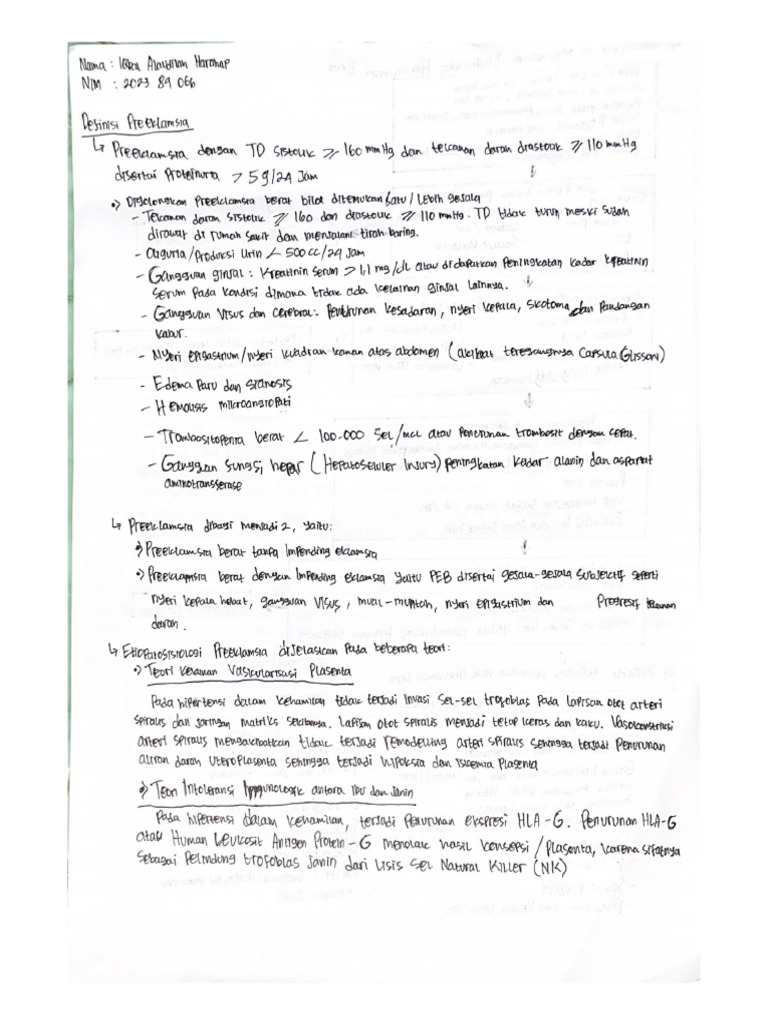 Nama : Iqbal Alauddan Harahap
NIM : 2023 89 066
Definisi Preeklamsia
↳ Preeklamsia dengan TD sistolik ≥ 160 mmHg dan tekanan darah diastolik ≥ 110 mmHg
disertai Proteinuria > 5g/24 Jam
•) Digolongkan Preeklamsia berat bila ditemukan satu / lebih gejala
- Tekanan darah sistolik ≥ 160 dan diastolik ≥ 110 mmHg. TD tidak turun meski sudah
dirawat di rumah sakit dan menjalani tirah baring.
- Oliguria / Produksi urin < 500 cc / 24 Jam
- Gangguan ginjal : Kreatinin serum > 1,1 mg/dL atau didapatkan Peningkatan kadar kreatinin
serum Pada kondisi dimana tidak ada kelainan ginjal lainnya.
- Gangguan Visus dan cerebral : Penurunan kesadaran, nyeri kepala, skotoma dan Pandangan
kabur.
- Nyeri epigastrium / nyeri kuadran kanan atas abdomen (akibat teregangnya Capsula Glisson)
- Edema Paru dan sianosis
- Hemolisis mikroangiopati
- Trombositopenia berat < 100.000 sel/mcl atau Penurunan trombosit dengan cepat.
- Gangguan fungsi hepar (Hepatoseluler Injury) Peningkatan kadar alanin dan aspartat
aminotransferase
↳ Preeklamsia dibagi menjadi 2, yaitu:
•) Preeklamsia berat tanpa Impending eklamsia
•) Preeklamsia berat dengan Impending eklamsia yaitu PEB disertai gejala-gejala subjektif seperti
nyeri kepala hebat, gangguan visus, mual-muntah, nyeri epigastrium dan Progresif tekanan
darah.
↳ Etiopatofisiologi Preeklamsia dijelaskan Pada beberapa teori:
•) Teori kelainan Vaskularisasi Plasenta
Pada hipertensi dalam kehamilan tidak terjadi Invasi sel-sel trofoblas Pada lapisan otot arteri
spiralis dan jaringan matriks sekitarnya. Lapisan otot spiralis menjadi tetap keras dan kaku. Vasokonstriksi
arteri spiralis mengakibatkan tidak terjadi remodelling arteri spiralis sehingga terjadi Penurunan
aliran darah Uteroplasenta sehingga terjadi hipoksia dan iskemia Plasenta
•) Teori Intoleransi Immunologik antara Ibu dan Janin
Pada hipertensi dalam kehamilan, terjadi Penurunan ekspresi HLA-G. Penurunan HLA-G
atau Human Leukosit Antigen Protein-G menolak hasil konsepsi / plasenta, karena sifatnya
sebagai Pelindung trofoblas Janin dari Lisis Sel Natural Killer (NK)